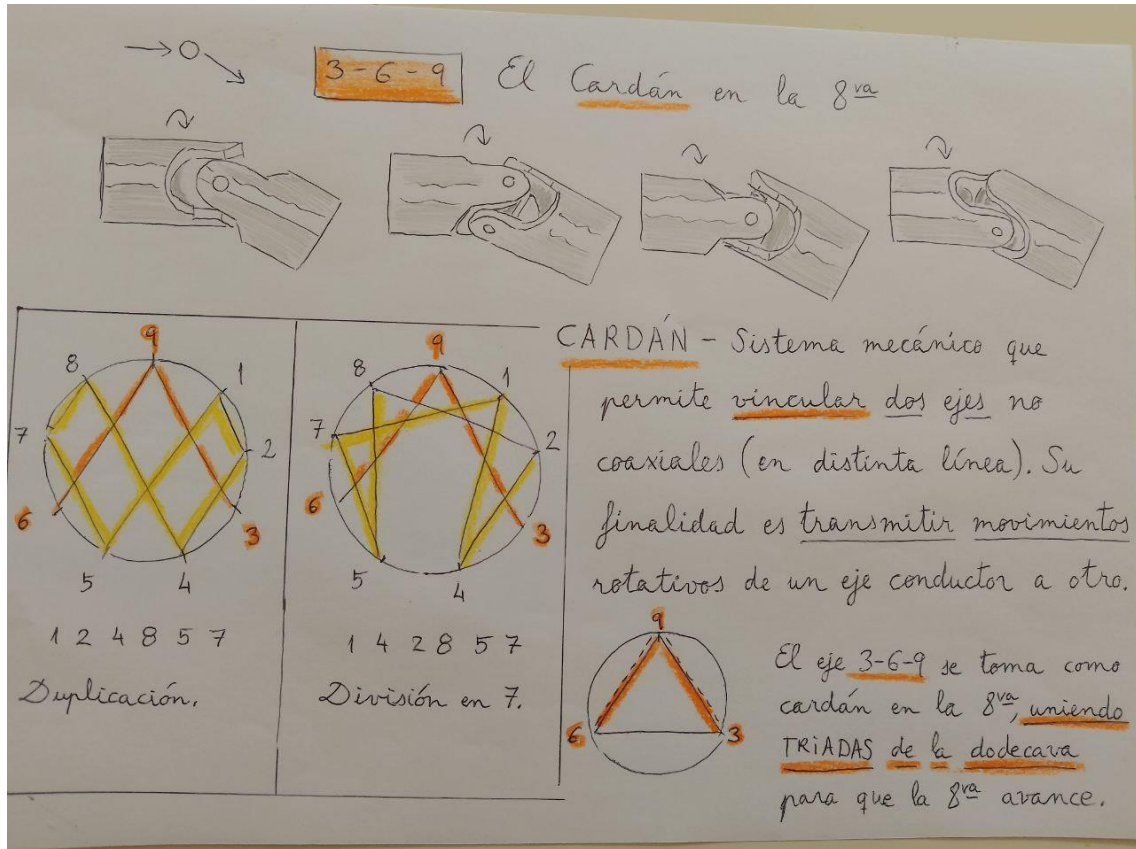 3-6-9 El Cardán en la 8va
9
8
1
7
2
6
3
5
4
1 2 4 8 5 7
Duplicación.
9
8
1
7
2
6
3
5
4
1 4 2 8 5 7
División en 7.
CARDÁN - Sistema mecánico que
permite vincular dos ejes no
coaxiales (en distinta línea). Su
finalidad es transmitir movimientos
rotativos de un eje conductor a otro.
9
6
3
El eje 3-6-9 se toma como
cardán en la 8va, uniendo
TRIADAS de la dodecava
para que la 8va avance.